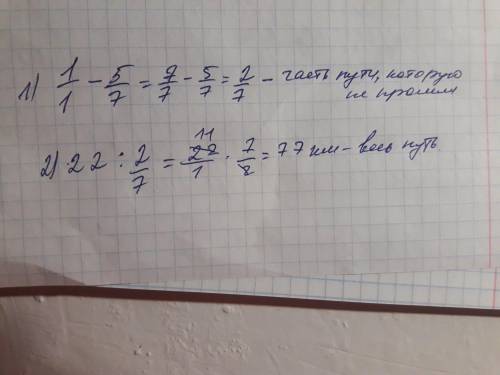 1) 1/1 - 5/7 = 7/7 - 5/7 = 2/7 - часть пути, которую
не прошли
2) 22 : 2/7 = 22/1 · 7/2 = 77 км - весь путь.
11